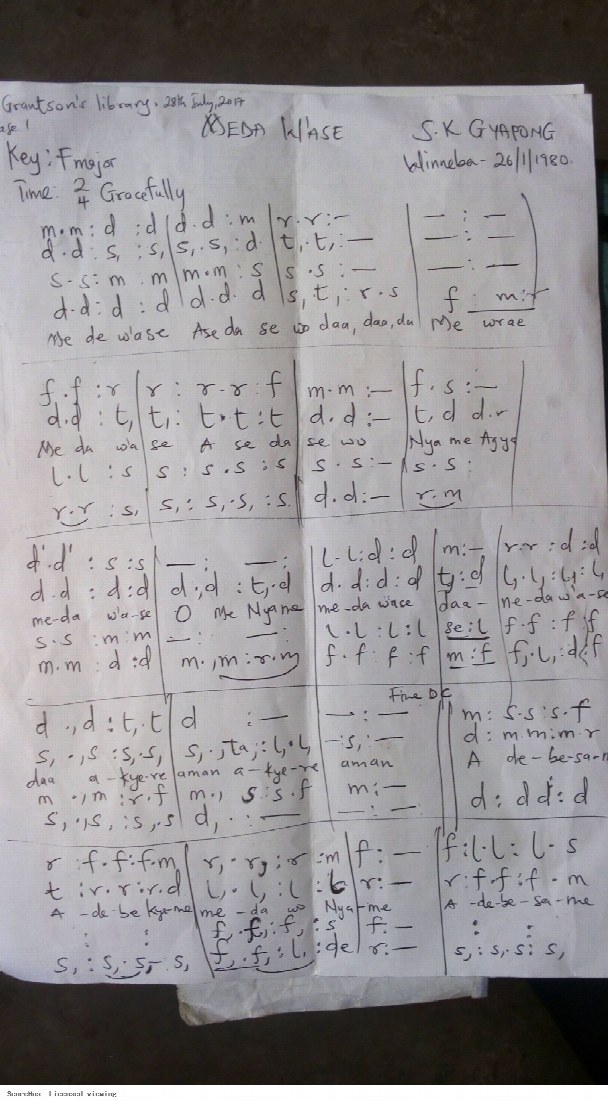 Grantson's library. 28th July, 2017
MEDA W'ASE S.K GYAPONG
Key: F major Winneba - 26/1/1980.
Time: 2/4 Gracefully
m.m : d : d | d.d : m | r.r : — | — : —
d.d : s, : s, | s, . s, : d | t, . t, : — | — : —
s.s : m m | m.m : s | s.s : — | — : —
d.d : d : d | d.d. d | s, t, : r.s | f : m : r
Me de w'ase Ase da se wo daa, daa, da Me wrae
f.f : r | r : r.r : f | m.m : — | f.s : —
d.d : t, | t, : t.t : t | d.d : — | t, d d.r
Me da w'a se A se da se wo Nya me Agya
l.l : s | s : s.s : s | s.s : — | s.s :
r.r : s, | s, : s, . s, : s | d.d : — | r.m
d'.d' : s : s | — : — : | l.l : d : d | m : — | r.r : d : d
d.d : d : d | d : , d : t, . d | d.d : d : d | t, : d | l, . l, : l, : l,
me-da w'a-se O Me Nyame me-da wase daa - me-da w'a-se
s.s : m : m | — : — : | l.l : l : l | se : l | f.f : f f
m.m : d : d | m . , m : r.m | f.f : f : f | m : f | f, . l, : d : f
Fine DC
d . , d : t, . t | d : — | — : — | m : s.s : s.f
s, . , s : s, . s, | s, . , ta, : l, . l, | - s, : — | d : m.m : m.r
daa a-kye-re aman a-kye-re aman A de-be-sa-m
m . , m : r.f | m . , s : s.f | m : —
s, . , s, : s, . s | d, . : — | — : — | d : d d : d
r : f.f : f.m | r, . r, : r : m | f : — | f : l.l : l.s
t : r.r : r.d | l, . l, : l : l | r : — | r : f.f : f.m
A -de-be kye-me me -da wo Nya-me A -de-be-sa-me
: : f, . f, : f, : s f : — : :
s, : s, . s, - s, | f, . f, : l, : de | r : — | s, : s, . s : s,
ScoreMuse Licensed viewing